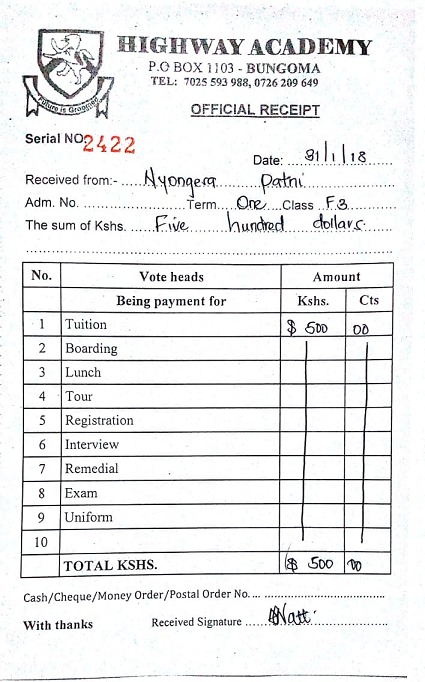 HIGHWAY ACADEMY
P.O BOX 1103 - BUNGOMA
TEL: 7025 593 988, 0726 209 649
OFFICIAL RECEIPT
Serial NO 2422
Date: 31/1/18
Received from:- Nyongera Patni
Adm. No. Term One Class F3
The sum of Kshs. Five hundred dollars
No. Vote heads Amount
Being payment for Kshs. Cts
1 Tuition $ 500 00
2 Boarding
3 Lunch
4 Tour
5 Registration
6 Interview
7 Remedial
8 Exam
9 Uniform
10
TOTAL KSHS. $ 500 00
Cash/Cheque/Money Order/Postal Order No.
With thanks Received Signature